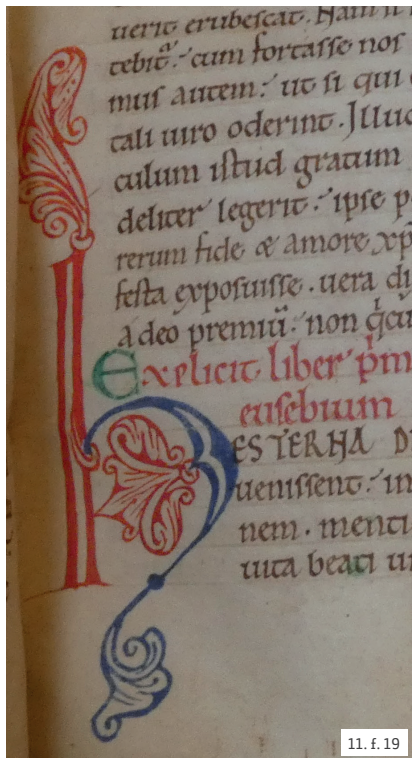 uerit erubescat. Nam n
tebit᷒: cum fortasse nos
mus autem: ut si qui
tali uiro oderint. Illuc
culum istud gratum
deliter legerit: ipse p
rerum fide & amore xp̄
festa exposuisse. uera di
adeo premiū: non
Explicit liber p̄m
eusebium
HESTERNA D
uenissent: in
nem. menti
uita beati ui
11. f. 19